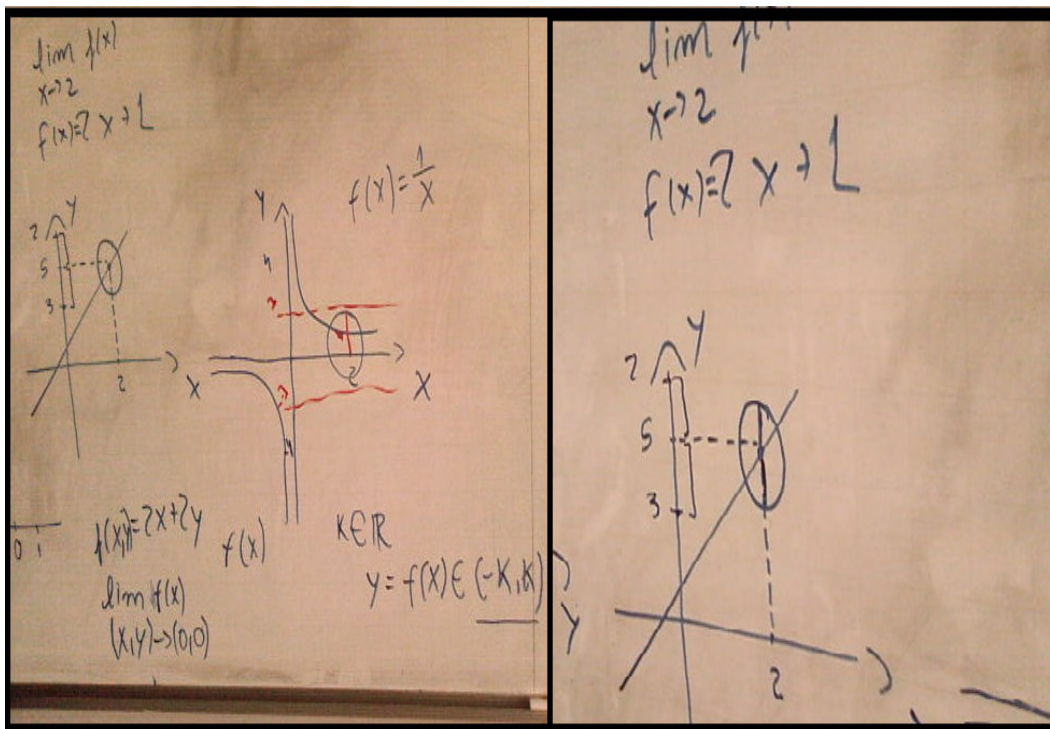 lim f(x)
x→2
f(x)=2x+1
Y
7
5
3
2
f(x)=1/x
Y
4
3
2
X
X
-3
-4
0 1
f(x,y)=2x+2y
lim f(x)
(x,y)→(0,0)
f(x)
K∈ℝ
y=f(x)∈(-K,K)
lim f(x)
x→2
f(x)=2x+1
Y
7
5
3
2
Y